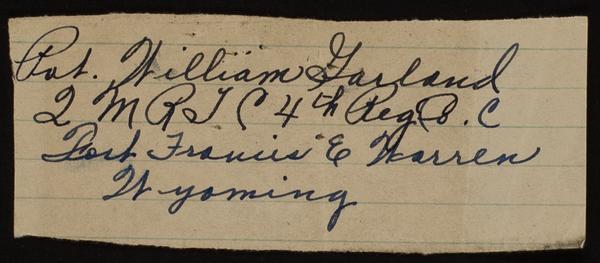 Pvt. William Garland
Q M R T C 4th Reg Co. C
Fort Francis E Warren
Wyoming